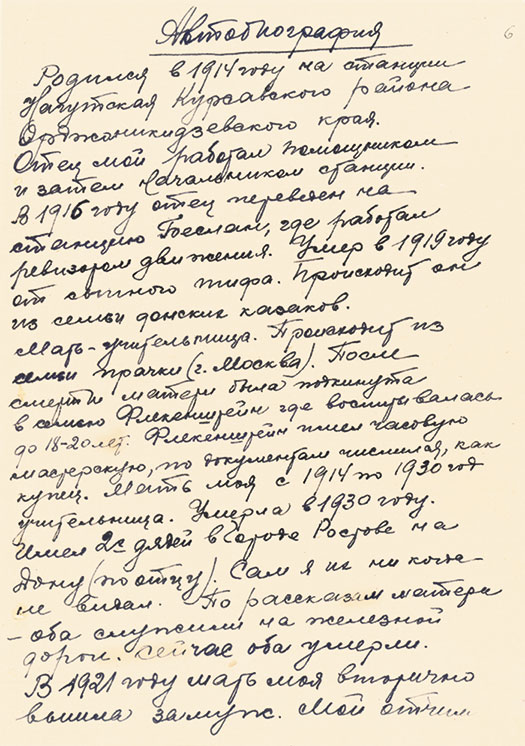 6
Автобиография
Родился в 1914 году на станции
Нагутская Курсавского района
Орджоникидзевского края.
Отец мой работал помощником
и затем начальником станции.
В 1916 году отец переведен на
станцию Беслан, где работал
ревизором движения. Умер в 1919 году
от сыпного тифа. Происходит он
из семьи донских казаков.
Мать - учительница. Происходит из
семьи прачки (г. Москва). После
смерти матери была подкинута
в семью Флекенштейн где воспитывалась
до 18-20 лет. Флекенштейн имел часовую
мастерскую, по документам числился, как
купец. Мать моя с 1914 по 1930 год
учительница. Умерла в 1930 году.
Имел 2х дядей в городе Ростове на
Дону (по отцу). Сам я их ни когда
не видал. По рассказам матери
- оба служили на железной
дороги. Сейчас оба умерли.
В 1921 году мать моя вторично
вышла замуж. Мой отчим